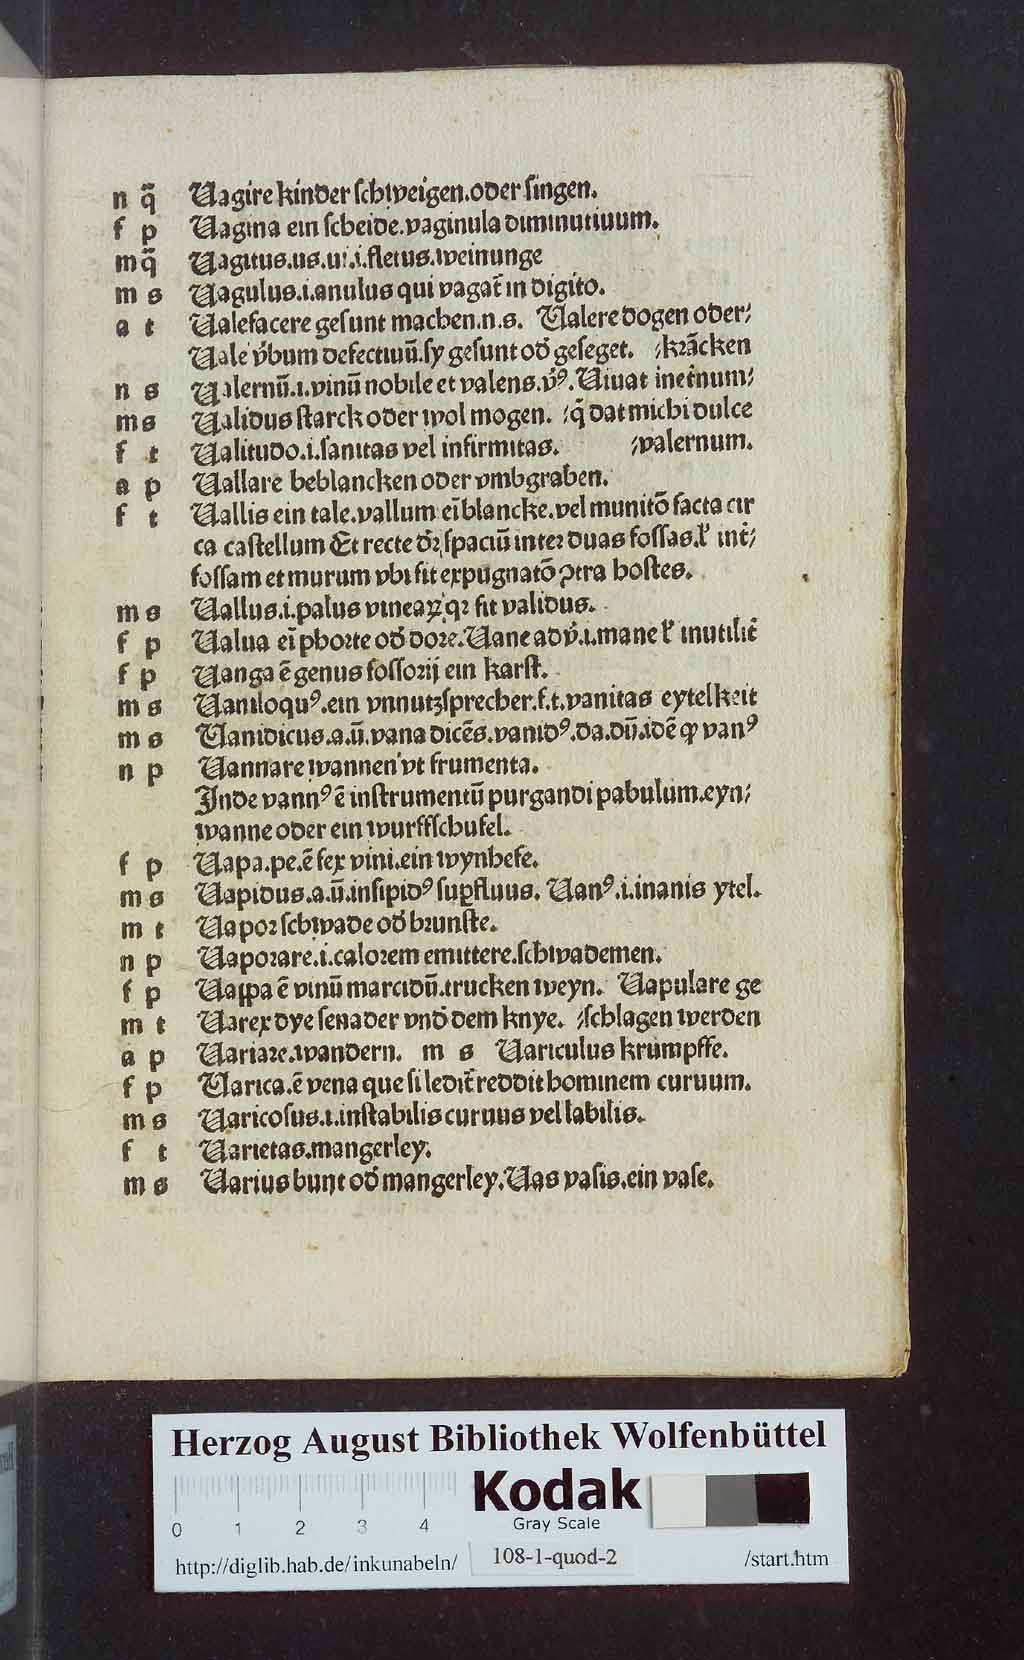 n q̄ Uagire kinder schweigen.oder singen.
f p Uagina ein scheide.vaginula diminutiuum.
m q̄ Uagitus.us.ui.i.fletus.weinunge
m s Uagulus.i.anulus qui vagat̄ in digito.
a t Ualefacere gesunt machen.n.s. Ualere dogen oder⸗
Uale v̓bum defectiuū.sy gesunt od̓ geseget. ⸗krācken
n s Ualernū.i.vinū nobile et valens.v̓ꝰ.Uiuat inet̓num⸗
m s Ualidus starck oder wol mogen. ⸗q̄ dat michi dulce
f t Ualitudo.i.sanitas vel infirmitas. ⸗valernum.
a p Uallare beblancken oder vmbgraben.
f t Uallis ein tale.vallum eī blancke.vel munitō facta cir
ca castellum Et recte d̓ꝛ spaciū inter duas fossas.ł int̓⸗
fossam et murum vbi fit expugnatō ꝯtra hostes.
m s Uallus.i.palus vineaꝝ qꝛ fit validus.
f p Ualua eī phorte od̓ dore.Uane adv̓.i.mane ł inutilit̓
f p Uanga ē genus fossorij ein karst.
m s Uaniloquꝰ.ein vnnutzsprecher.f.t.vanitas eytelkeit
m s Uanidicus.a.ū.vana dicēs.vanidꝰ.da.dū.idē qꝫ vanꝰ
n p Uannare wannen vt frumenta.
Inde vannꝰ ē instrumentū purgandi pabulum.eyn⸗
wanne oder ein wurffschufel.
f p Uapa.pe.ē fex vini.ein wynhefe.
m s Uapidus.a.ū.insipidꝰ suꝑfluus. Uanꝰ.i.inanis ytel.
m t Uapor schwade od̓ brunste.
n p Uaporare.i.calorem emittere.schwademen.
f p Uappa ē vinū marcidū.trucken weyn. Uapulare ge
m t Uarex dye senader vnd̓ dem knye. ⸗schlagen werden
a p Uariare.wandern. m s Uariculus krumpffe.
f p Uarica.ē vena que si ledit̄ reddit hominem curuum.
m s Uaricosus.i.instabilis curuus vel labilis.
f t Uarietas.mangerley.
m s Uarius bunt od̓ mangerley.Uas vasis.ein vase.
Herzog August Bibliothek Wolfenbüttel
Kodak
Gray Scale
0 1 2 3 4
http://diglib.hab.de/inkunabeln/ 108-1-quod-2 /start.htm